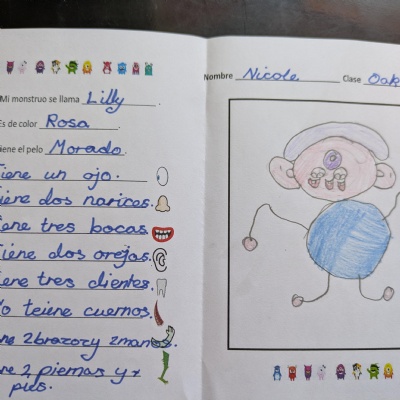 Mi monstruo se llama Lilly.
Es de color Rosa.
iene el pelo Morado.
iene un ojo.
iene dos narices.
iene tres bocas.
iene dos orejas.
iene tres dientes.
o teiene cuernos.
ne 2 brazos y 2 manos.
ne 2 piernas y 2
pies.
Nombre Nicole Clase Oak